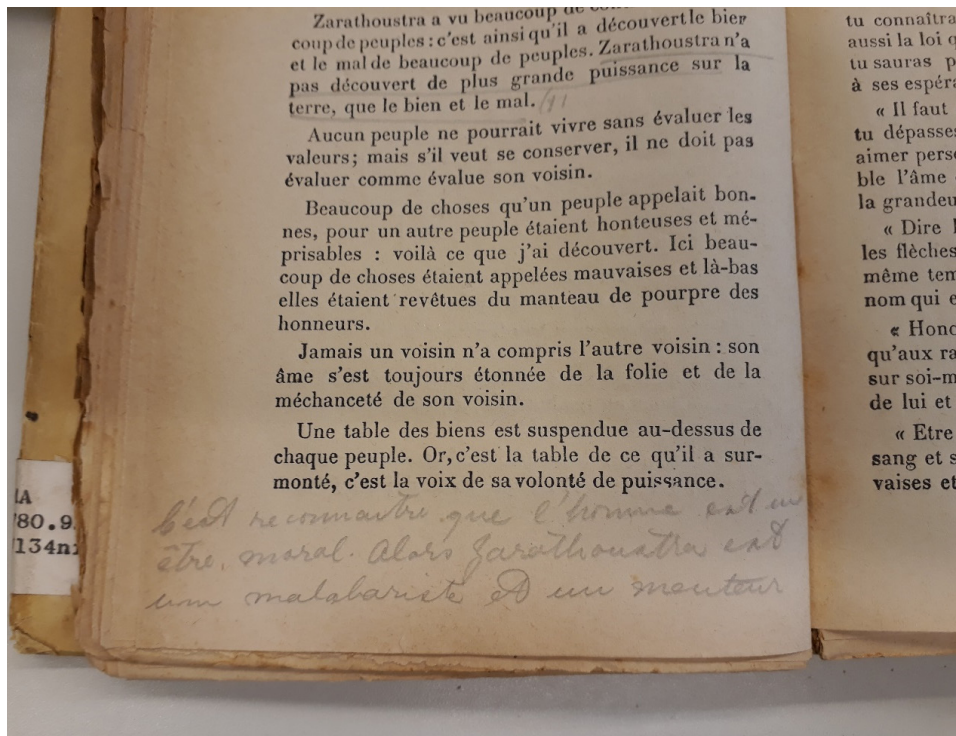 Zarathoustra a vu beaucoup de
coup de peuples : c'est ainsi qu'il a découvert le bien
et le mal de beaucoup de peuples. Zarathoustra n'a
pas découvert de plus grande puissance sur la
terre, que le bien et le mal.
Aucun peuple ne pourrait vivre sans évaluer les
valeurs; mais s'il veut se conserver, il ne doit pas
évaluer comme évalue son voisin.
Beaucoup de choses qu'un peuple appelait bon-
nes, pour un autre peuple étaient honteuses et mé-
prisables : voilà ce que j'ai découvert. Ici beau-
coup de choses étaient appelées mauvaises et là-bas
elles étaient revêtues du manteau de pourpre des
honneurs.
Jamais un voisin n'a compris l'autre voisin : son
âme s'est toujours étonnée de la folie et de la
méchanceté de son voisin.
Une table des biens est suspendue au-dessus de
chaque peuple. Or, c'est la table de ce qu'il a sur-
monté, c'est la voix de sa volonté de puissance.
C'est reconnaitre que l'homme est un
être moral. Alors Zarathoustra est
um malabariste et un menteur
tu connaîtra
aussi la loi q
tu sauras p
à ses espéra
« Il faut
tu dépasses
aimer perso
ble l'âme
la grandeu
« Dire l
les flèches
même tem
nom qui e
« Hono
qu'aux ra
sur soi-m
de lui et
« Etre
sang et s
vaises et
80.9
134n